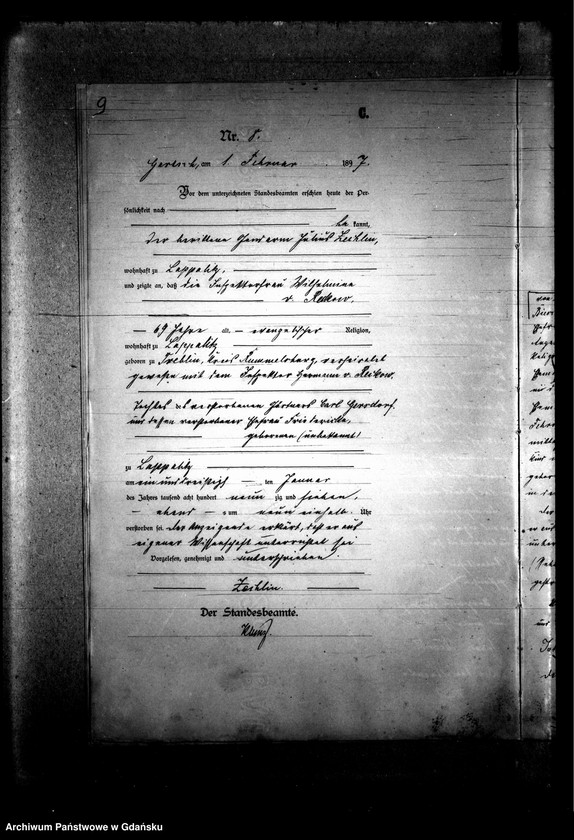 9
C.
Nr. 8.
am 1. Februar 1897.
Vor dem unterzeichneten Standesbeamten erschien heute der Per-
sönlichkeit nach
kannt,
der berittene Gendarm Julius Zechlin,
wohnhaft zu Lappalitz,
und zeigte an, daß die Inspektorfrau Wilhelmine
v. Rekow,
69 Jahre alt, evangelischer Religion,
wohnhaft zu Lappalitz
geboren zu Treblin, Kreis Rummelsburg, verheirathet
gewesen mit dem Inspektor Hermann v. Rekow,
Tochter des verstorbenen Gärtners Carl Gersdorf
und dessen verstorbener Ehefrau Friederike,
geborenen (unbekannt)
zu Lappalitz
am einunddreißigsten Januar
des Jahres tausend acht hundert neunzig und sieben,
abends um neun einhalb Uhr
verstorben sei. Der Anzeigende erklärt, daß er aus
eigener Wissenschaft unterrichtet sei
Vorgelesen, genehmigt und unterschrieben
Zechlin.
Der Standesbeamte.
Archiwum Państwowe w Gdańsku